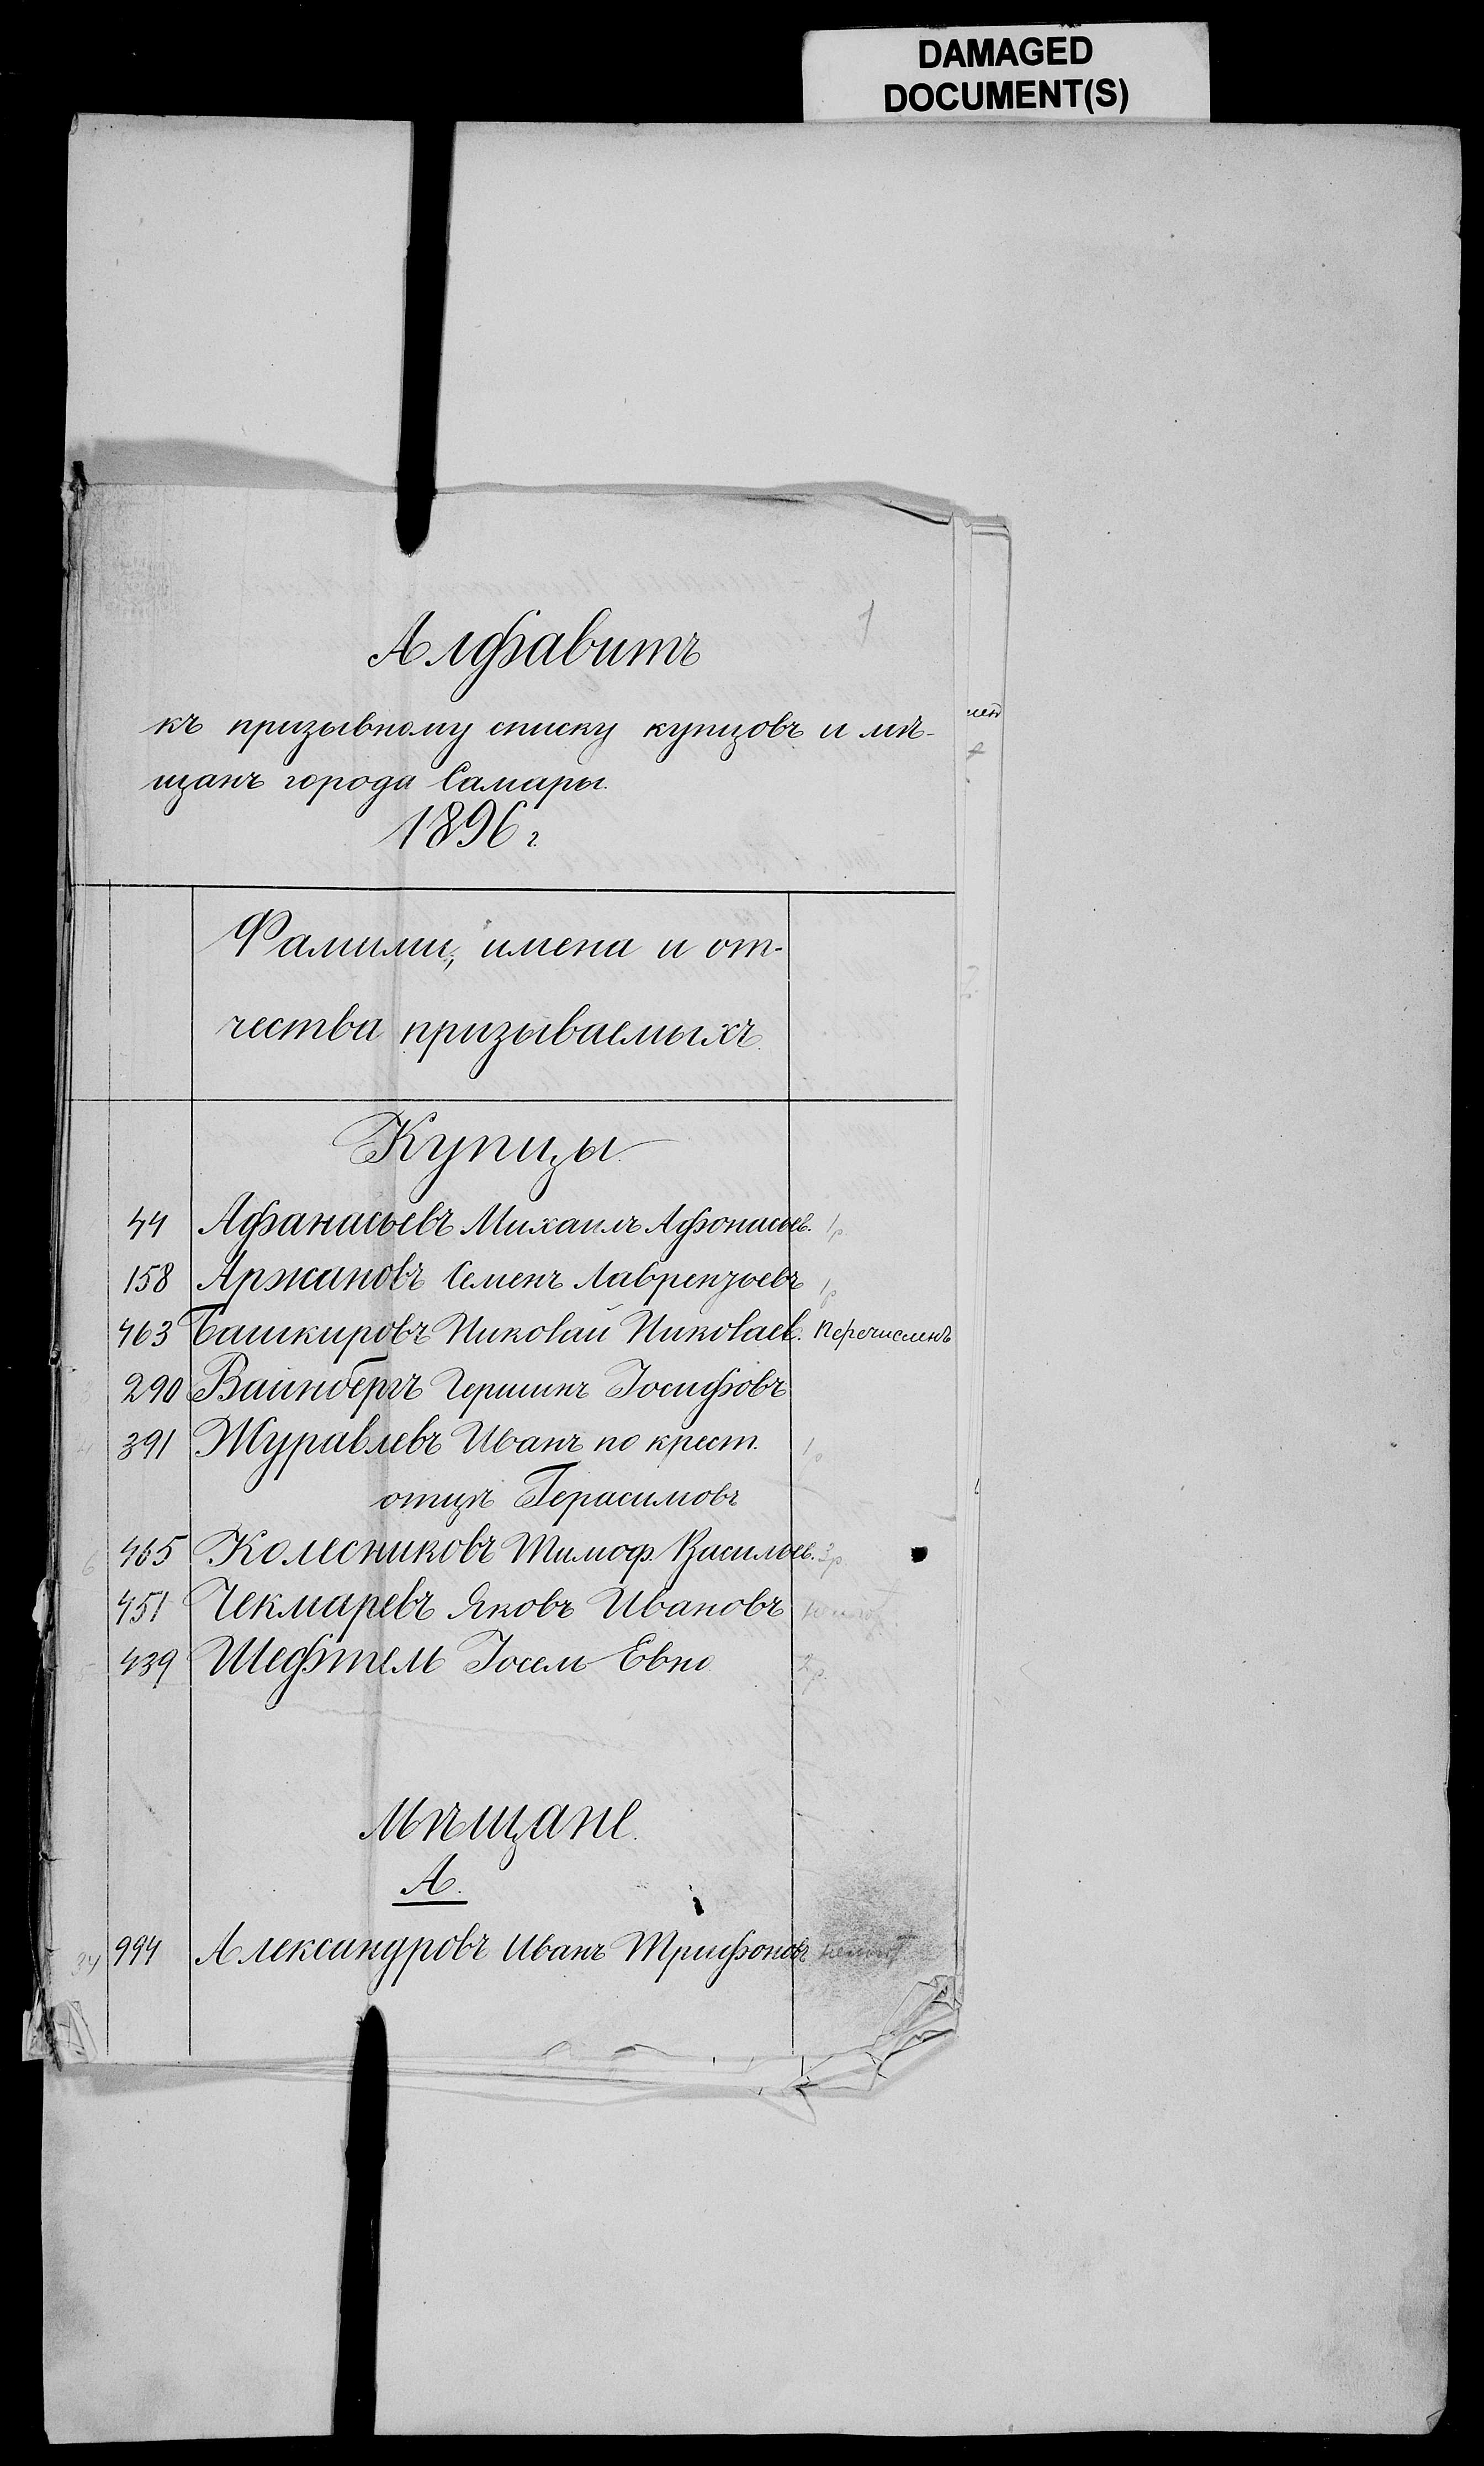 DAMAGED
DOCUMENT(S)
1
Алфавитъ
къ призывному списку купцовъ и мѣ-
щанъ города Самары.
1896 г.
Фамилии, имена и от-
чества призываемыхъ.
Купцы.
44 Афанасьевъ Михаилъ Афонасьев. 1р.
158 Аржановъ Семенъ Лаврентьевъ 1р
463 Башкировъ Николай Николаев. перечисленъ
290 Вайнбергъ Гершинъ Іосифовъ
4 391 Журавлевъ Иванъ по крест. 1р
отцѣ Герасимовъ
6 465 Колесниковъ Тимоф. Васильев. 3р.
451 Чекмаревъ Яковъ Ивановъ
5 439 Шефтель Іосель Евно 2р.
Мѣщане.
А.
34 994 Александровъ Иванъ Трифоновъ